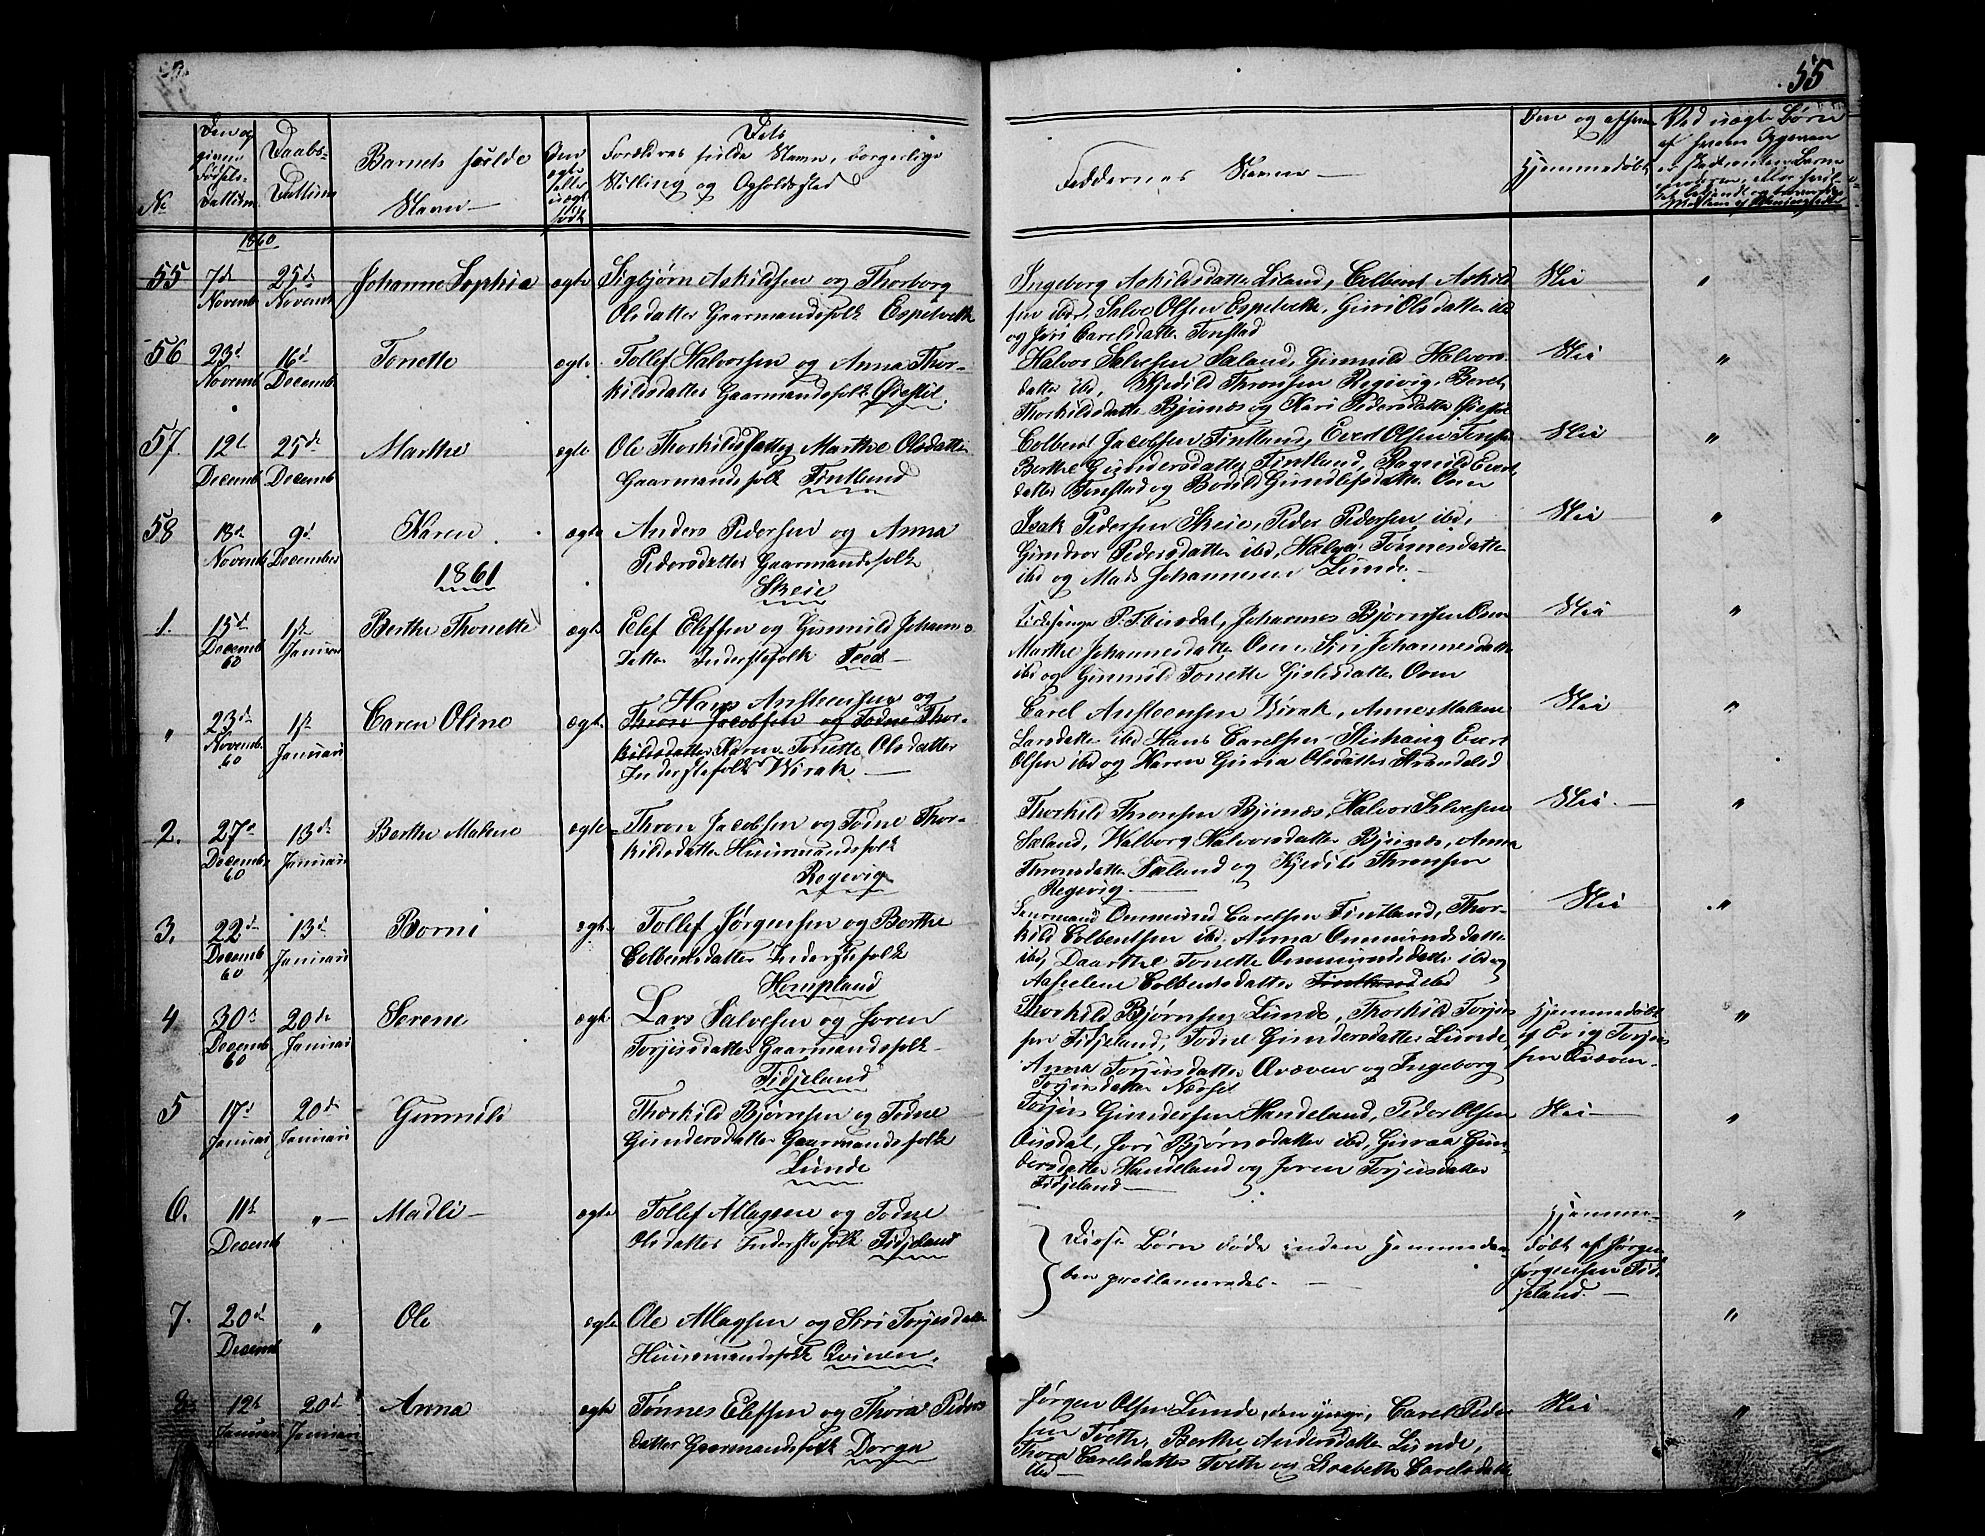 55
No
Den og
Fødsels-
Dattum
Daabs-
Dattum
Barnets fulde
Navn
Den
ægte
eller
uægt
født
Dets
Forældres fulde Navn, borgerlige
Stilling og Opholdssted
Faddernes Navne
Den og af hvem
Hjemmedøbt
Ved uægte Børn
1860
55 7d Novemb 25d Novemb Johanne Sophia ægte
Sigbjørn Askildsen og Thorborg
Olsdatter Gaarmandsfolk Espetvedt
Ingeborg Askildsdatter Liland, Colbent Askild
sen ibd, Salve Olsen Espetvedt, Guri Olsdatter ibd
og Jøri Carelsdatter Tonstad
Nei "
56 23d Novemb 16d Decemb Tonette ægte
Tollef Halvorsen og Anna Thor-
kildsdatter Gaarmandsfolk
Halvor Salvesen Saland, Gunnild Halvors
datter ibd, Kjedild Thronsen Regevig, Beret
Thorkildsdatter Bjunes og Kari Pedersdatter
Nei "
57 12te Decemb 25de Decemb Marthe ægte
Ole Thorkildsen og Marthe Olsdatter
Gaarmandsfolk Fintland
Colbent Jacobsen Fintland, Evert Olsen Tonstad
Berthe Gundersdatter Fintland, Ragnild Evert
datter Tonstad og Bodil Gundlefsdatter Omn
Nei "
58 18de Novemb 9d December Karen ægte
Anders Pedersen og Anna
Pedersdatter Gaarmandsfolk
Skeie
Isak Pedersen Skeie, Peder Pedersen ibd,
Gundvor Pedersdatter ibd, Tønnesdatter
ibd og Mads Johannesen Lunde
Nei "
1861
1. 15de Decemb 60 1ste Januar Berthe Thonette ægte
Elef Elefsen og Gunnild Johanne
Datter Inderstefolk Feed
P. Flinsdal, Johannes Bjørnsen Omn
Marthe Johannesdatter Omn, Siri Johannesdatter
ibd og Gunnild Tonette Gislesdatter Omn
Nei "
" 23d Novemb. 60 1ste Januari Caren Oline ægte
Hans Ansteensen og
Thron Jacobsen og Todne Thor-
kildsdatter Karen Tonette Olsdatter
Inderstefolk Wirak
Carel Ansteensen Wirak, Anne Malene
Larsdatter ibd Hans Carelsen Evert
Olsen ibd og Karen Gurina Olsdatter
Nei "
2. 27de Decemb. 60 13de Januari Berthe Malene ægte
Thron Jacobsen og Todne Thor-
kildsdatter Huusmandsfolk
Regevig
Thorkild Thronsen Bjunes, Halvor Salvesen
Saland, Walborg Halvorsdatter Bjunes, Anna
Thronsdatter Saland og Kjedild Thronsen
Regevig
Nei "
3. 22d Decemb 60 13de Januari Borni ægte
Tollef Jørgensen og Berthe
Colbentsdatter Inderstefolk
Hompland
Ommund Carelsen Fintland, Thor-
kild Colbentsen ibd, Anna Ommundsdatter
ibd, Daarthe Tonette Ommundsdatter ibd og
Aaselene Colbentsdatter Fintland ibd
Nei "
4 30d Decemb 60 20de Januari Serene ægte
Lars Salvesen og Joren
Torjusdatter Gaarmandsfolk
Fidjeland
Thorkild Bjørnsen Lunde, Thorkild Torjus
sen Fidjeland, Todne Gundersdatter Lunde,
Anna Torjusdatter Qvæven og Ingeborg
Torjusdatter
Hjemmedøbt
af Torjus
sen Qvæven
"
5 17d Januari 20de Januari Gunnild
Thorkild Bjørnsen og Todne
Gundersdatter Gaarmandsfolk
Lunde
Torjus Gundersen Handeland, Peder Olsen
Ousdal, Jøri Bjørnsdatter ibd, Gun-
dersdatter Handeland og Joren Torjusdatter
Fidjeland
Nei "
6. 11te Decemb " Madli ægte
Tollef Atlagsen og Todne
Olsdatter Inderstefolk Fidjeland
Disse Børn døde inden Hjemmedaa-
ben proclameredes.
Hjemme-
døbt af Jørgen
Jørgensen Fid-
jeland.
"
7. 20d Decemb " Ole ægte
Ole Atlagsen og Siri Torjusdatter
Huusmandsfolk Qvinen.
"
8. 12te Januari 20d Januari Anna ægte
Tønnes Elefsen og Thora Peders
datter Gaarmandsfolk Dorga
Jørgen Olsen Lunde, den yngr, Carel Peder
sen Tveth, Berthe Andersdatter Lunde,
Thora Carelsdatter Tveth og Lisabeth Carelsdatter
ibd
Nei "